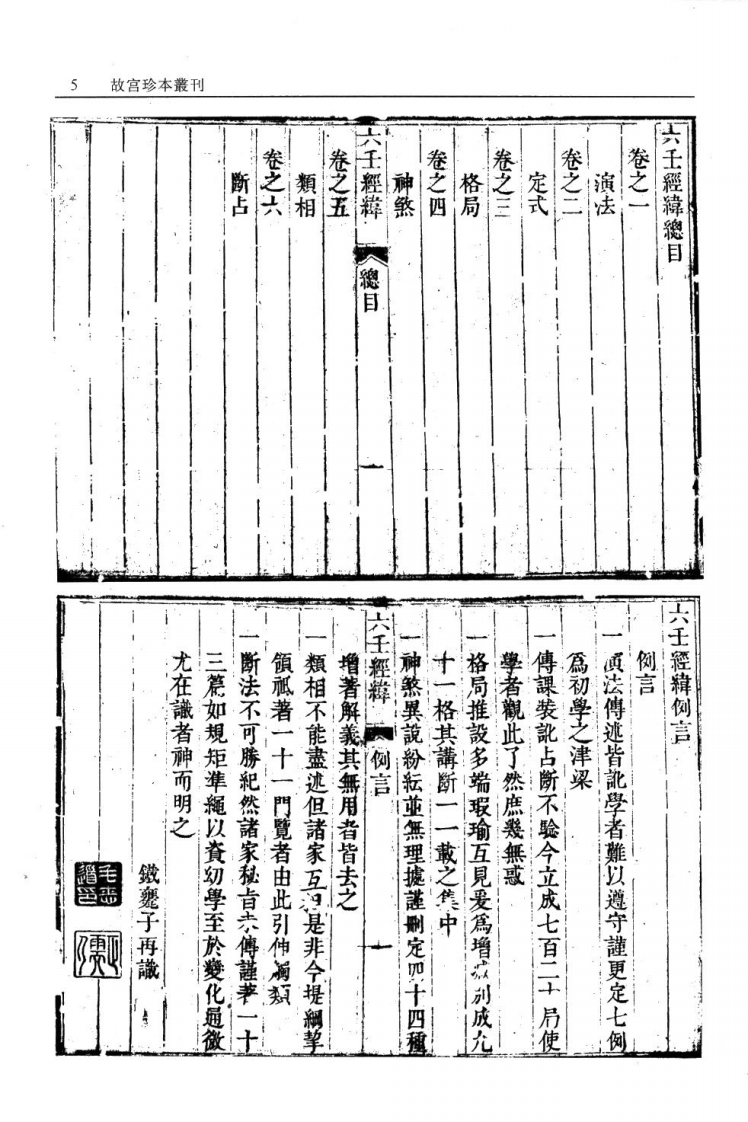 5 故宮珍本叢刊
六壬經緯總目
卷之一
演法
卷之二
定式
卷之三
格局
卷之四
神煞
六壬經緯 總目 一
卷之五
類相
卷之六
斷占
六壬經緯例言
例言
一演法傳述皆訛學者難以遵守謹更定七例
爲初學之津梁
一傳課裝訛占斷不驗今立成七百二十局使
學者觀此了然庶幾無惑
一格局推設多端瑕瑜互見爰爲增減列成九
十一格其講斷一一載之集中
一神煞異說紛紜並無理據謹刪定四十四種
六壬經緯 例言 一
增著解義其無用者皆去之
一類相不能盡述但諸家互相是非今提綱挈
領祇著一十一門覽者由此引伸觸類
一斷法不可勝紀然諸家秘旨未傳謹著一十
三篇如規矩準繩以資幼學至於變化通微
尤在識者神而明之
鐵甕子再識